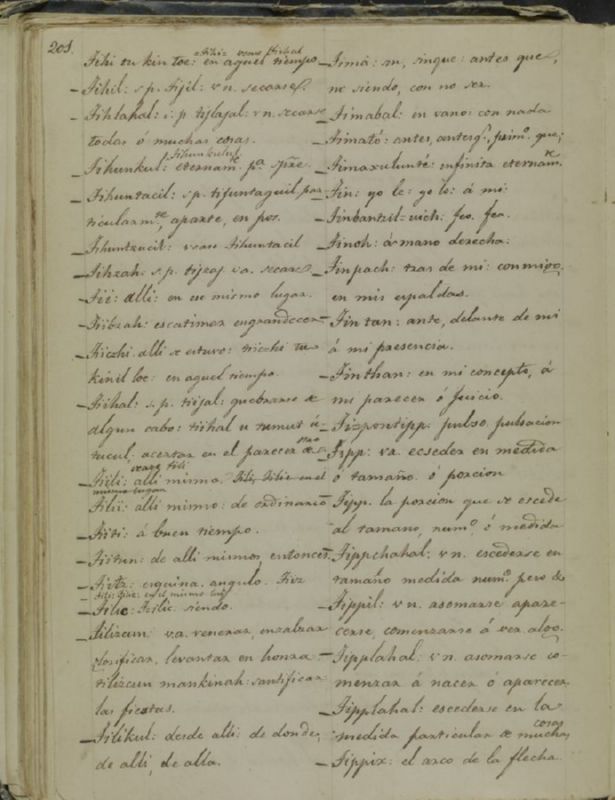 201.
Tihi tu kin loc: en aquel tiempo
Tihil: s.p. tijil: v.n. secarse.
Tihlahal: s.p. tijlajal: v.n. secarse
todas ó muchas cosas.
Tihunkul: eternam.te p.a spre.
Tihuntacil: s.p. tijuntaquil par
ticularm.te, aparte, en pos.
Tihuntzucil: vease Tihuntacil
Tihzah: s.p. tijzaj v.a. secar
Tii: alli: en ese mismo lugar.
Tiibzah: escatimar engrandecer
Tiiczhi alli se estuvo: tiiczhi tu
kinil loc: en aquel tiempo.
Tiihal: s.p. tiijal: quebrarse de
algun cabo: tiihal u tumut ú
tucul: acertar en el parecer
vease tili
Tiili: alli mismo. en el
mismo lugar
Tiilii: alli mismo: de ordinario
Tiiti: á buen tiempo.
Tiitun: de alli mismo, entonces.
Tiitz: esquina. angulo.
en el mismo lug.
Tilic: siendo.
Tilizcun: v.a. venerar, ensalzar
glorificar, levantar en honra
tilizcun mankinah: santificar
las fiestas.
Tilikul: desde alli: de donde,
de alli, de alla.
Timá: sin, sinque: antes que,
no siendo, con no ser.
Timabal: en vano: con nada
Timató: antes, antesq.e, prim.o que;
Timaxulunté: infinita eternam.te
Tin: yo le: yo lo: á mi:
Tinbantzil-uich: feo. fea.
Tinoh: á mano derecha:
Tinpach: tras de mi: conmigo.
en mis espaldas.
Tin tan: ante, delante de mi
á mi presencia.
Tinthan: en mi concepto, á
mi parecer ó juicio.
Tipontipp: pulso, pulsacion
Tipp: v.a. ecseder en medida
ó tamaño. ó porcion
Tipp. la porcion que se escede
al tamano, num.o ó medida
Tippchahál: v.n. escederse en
tamaño medida num.o peso &
Tippil: v.n. asomarse apare-
cerse, comenzarse á ver algo.
Tipplahal: v.n. asomarse co-
menzar á nacer ó aparecer.
Tipplahal: escederse en la
medida particular de muchas
cosas
Tippix: el arco de la flecha